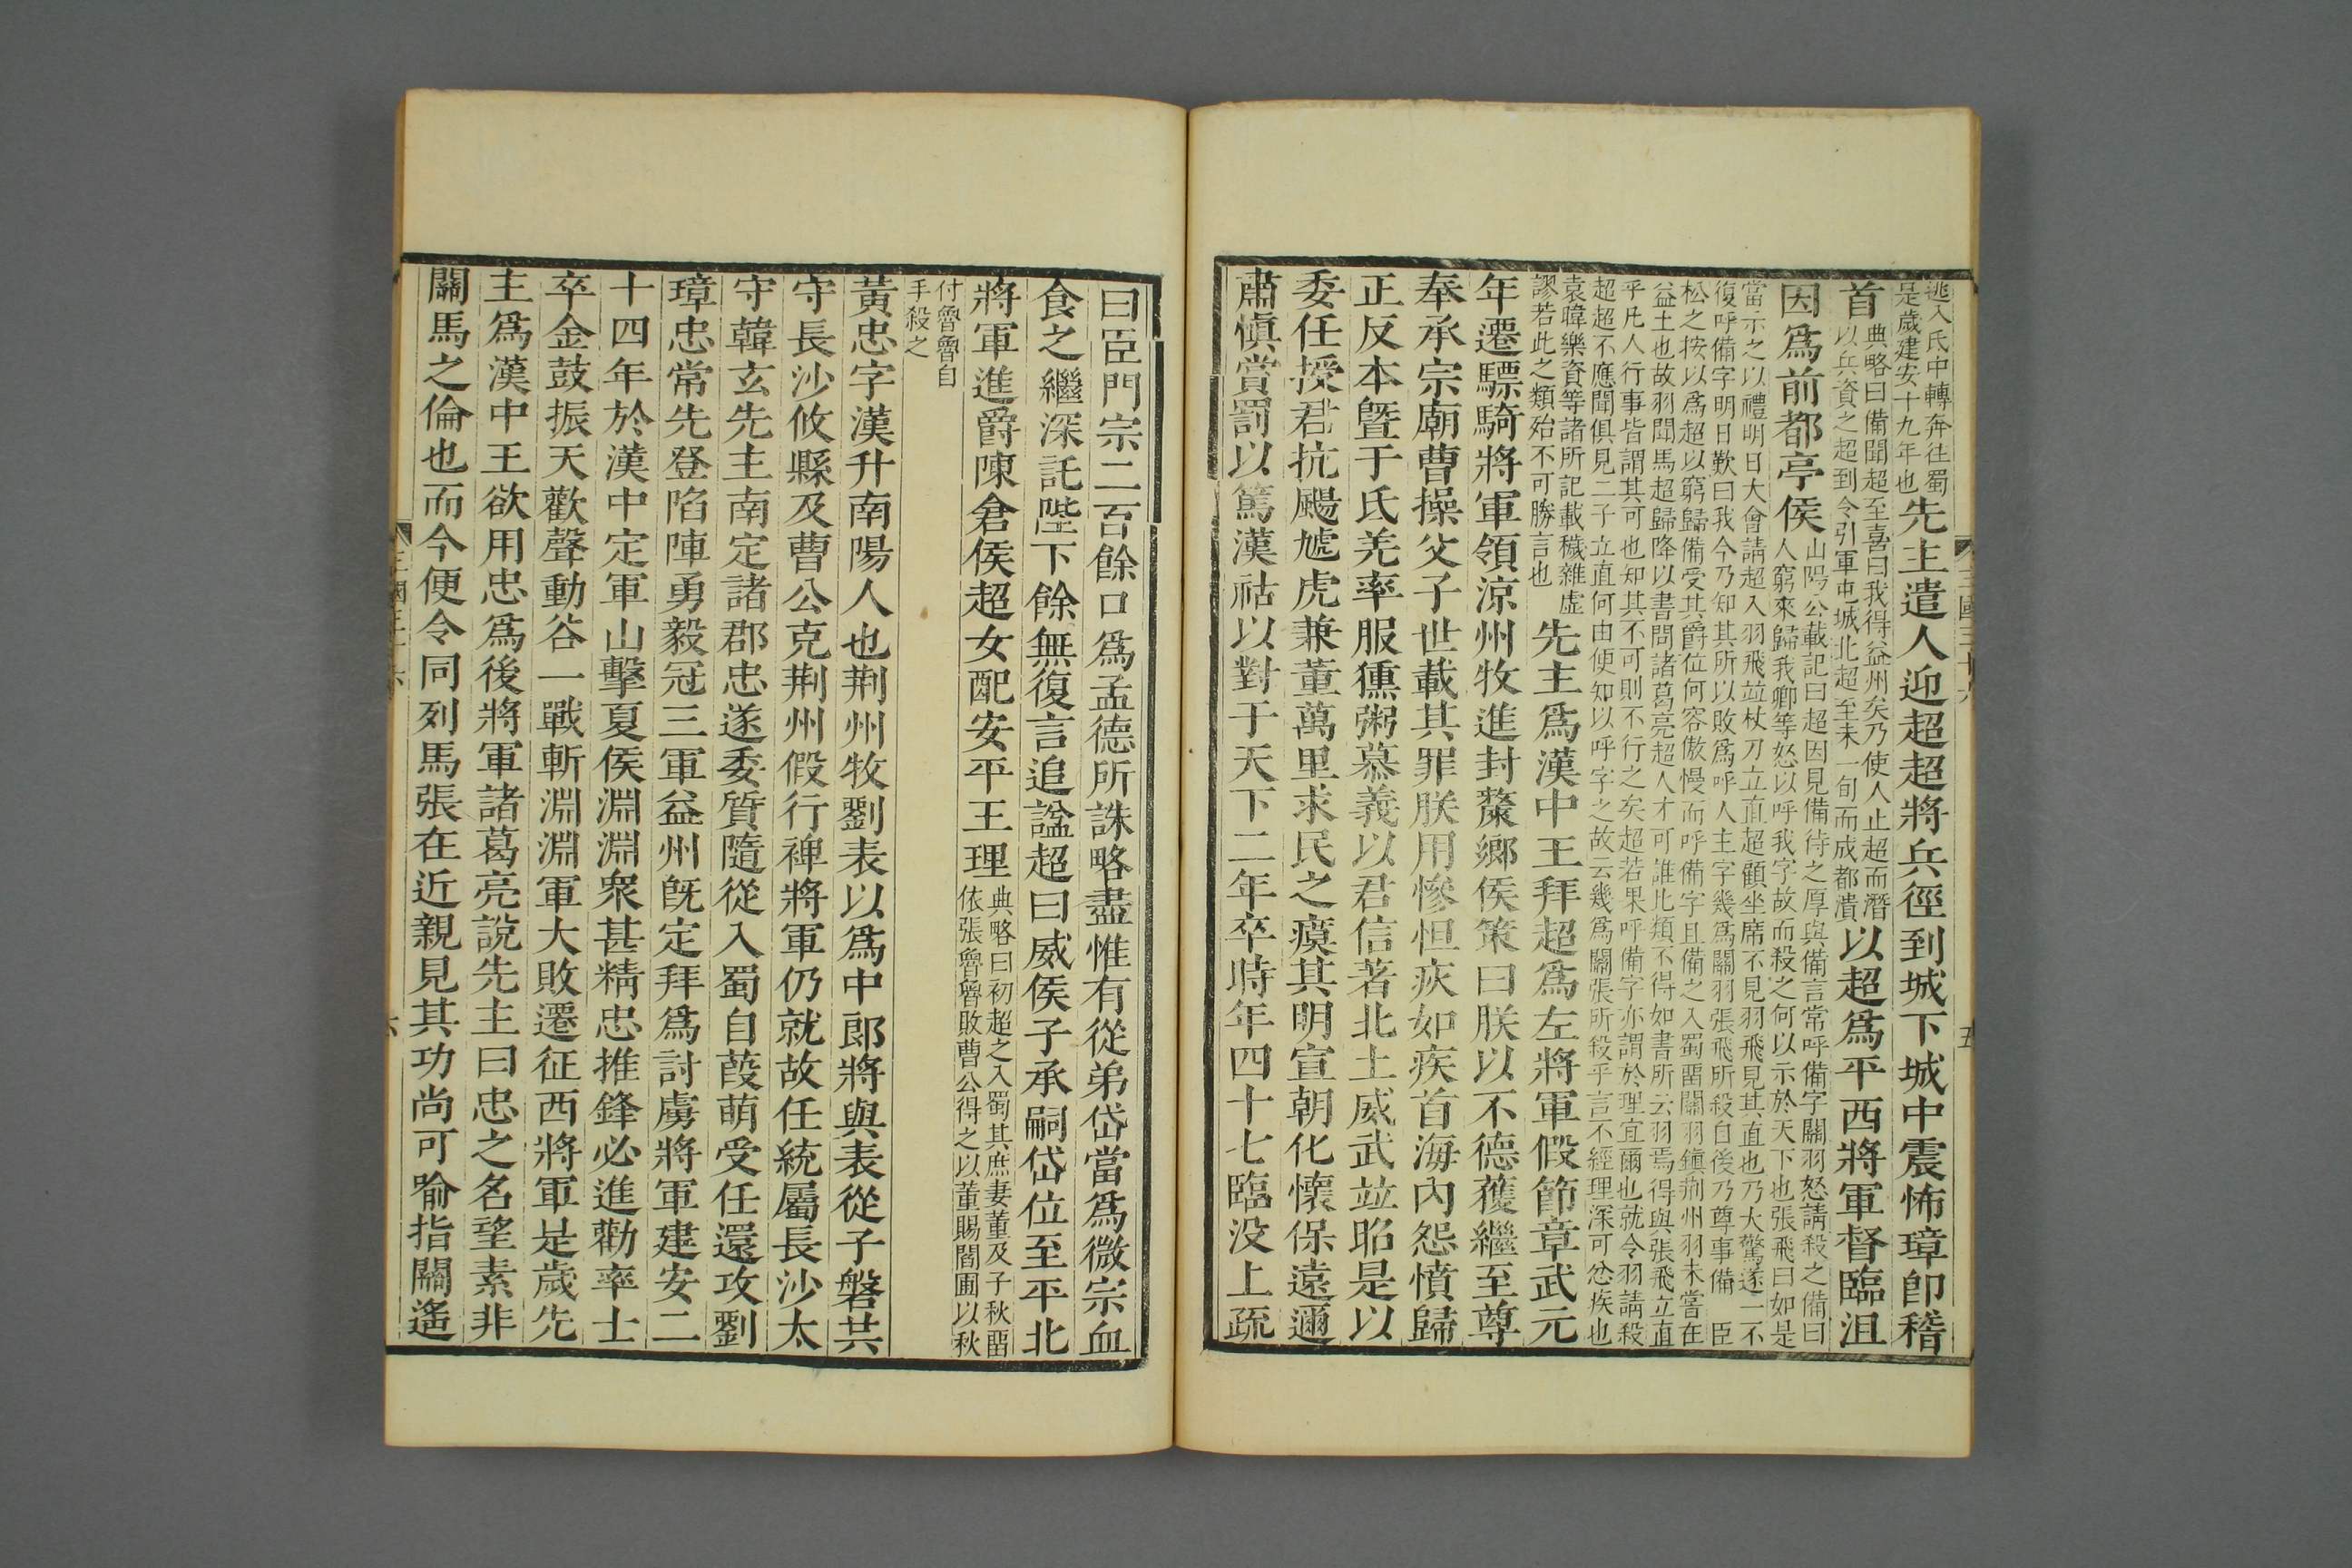 逃入氐中轉奔往蜀
是歲建安十九年也
先主遣人迎超超將兵徑到城下城中震怖璋卽稽
首
典略曰備聞超至喜曰我得益州矣乃使人止超而潛
以兵資之超到令引軍屯城北超至未一旬而成都潰
以超爲平西將軍督臨沮
因爲前都亭侯
山陽公載記曰超因見備待之厚與備言常呼備字關羽怒請殺之備曰
人窮來歸我卿等怒以呼我字故而殺之何以示於天下也張飛曰如是
當示之以禮明日大會請超入羽飛竝杖刀立直超顧坐席不見羽飛見其直也乃大驚遂一不
復呼備字明日歎曰我今乃知其所以敗爲呼人主字幾爲關羽張飛所殺自後乃尊事備 臣
松之按以爲超以窮歸備受其爵位何容傲慢而呼備字且備之入蜀留關羽鎮荆州羽未嘗在
益土也故羽聞馬超歸降以書問諸葛亮超人才可誰比類不得如書所云羽焉得與張飛立直
乎凡人行事皆謂其可也知其不可則不行之矣超若果呼備字亦謂於理宜爾也就令羽請殺
超超不應聞但見二子立直何由便知以呼字之故云幾爲關張所殺乎言不經理深可忿疾也
袁暐樂資等諸所記載穢雜虛
謬若此之類殆不可勝言也
先主爲漢中王拜超爲左將軍假節章武元
年遷驃騎將軍領涼州牧進封斄鄉侯策曰朕以不德獲繼至尊
奉承宗廟曹操父子世載其罪朕用慘怛疢如疾首海內怨憤歸
正反本暨于氐羌率服獯粥慕義以君信著北土威武竝昭是以
委任授君抗颺虓虎兼董萬里求民之瘼其明宣朝化懷保遠邇
肅愼賞罰以篤漢祜以對于天下二年卒時年四十七臨没上疏
曰臣門宗二百餘口爲孟德所誅略盡惟有從弟岱當爲微宗血
食之繼深託陛下餘無復言追諡超曰威侯子承嗣岱位至平北
將軍進爵陳倉侯超女配安平王理
典略曰初超之入蜀其庶妻董及子秋留
依張魯魯敗曹公得之以董賜閻圃以秋
付魯魯自
手殺之
黃忠字漢升南陽人也荆州牧劉表以爲中郎將與表從子磐共
守長沙攸縣及曹公克荆州假行裨將軍仍就故任統屬長沙太
守韓玄先主南定諸郡忠遂委質隨從入蜀自葭萌受任還攻劉
璋忠常先登陷陣勇毅冠三軍益州旣定拜爲討虜將軍建安二
十四年於漢中定軍山擊夏侯淵淵衆甚精忠推鋒必進勸率士
卒金鼓振天歡聲動谷一戰斬淵淵軍大敗遷征西將軍是歲先
主爲漢中王欲用忠爲後將軍諸葛亮說先主曰忠之名望素非
關馬之倫也而今便令同列馬張在近親見其功尚可喻指關遙